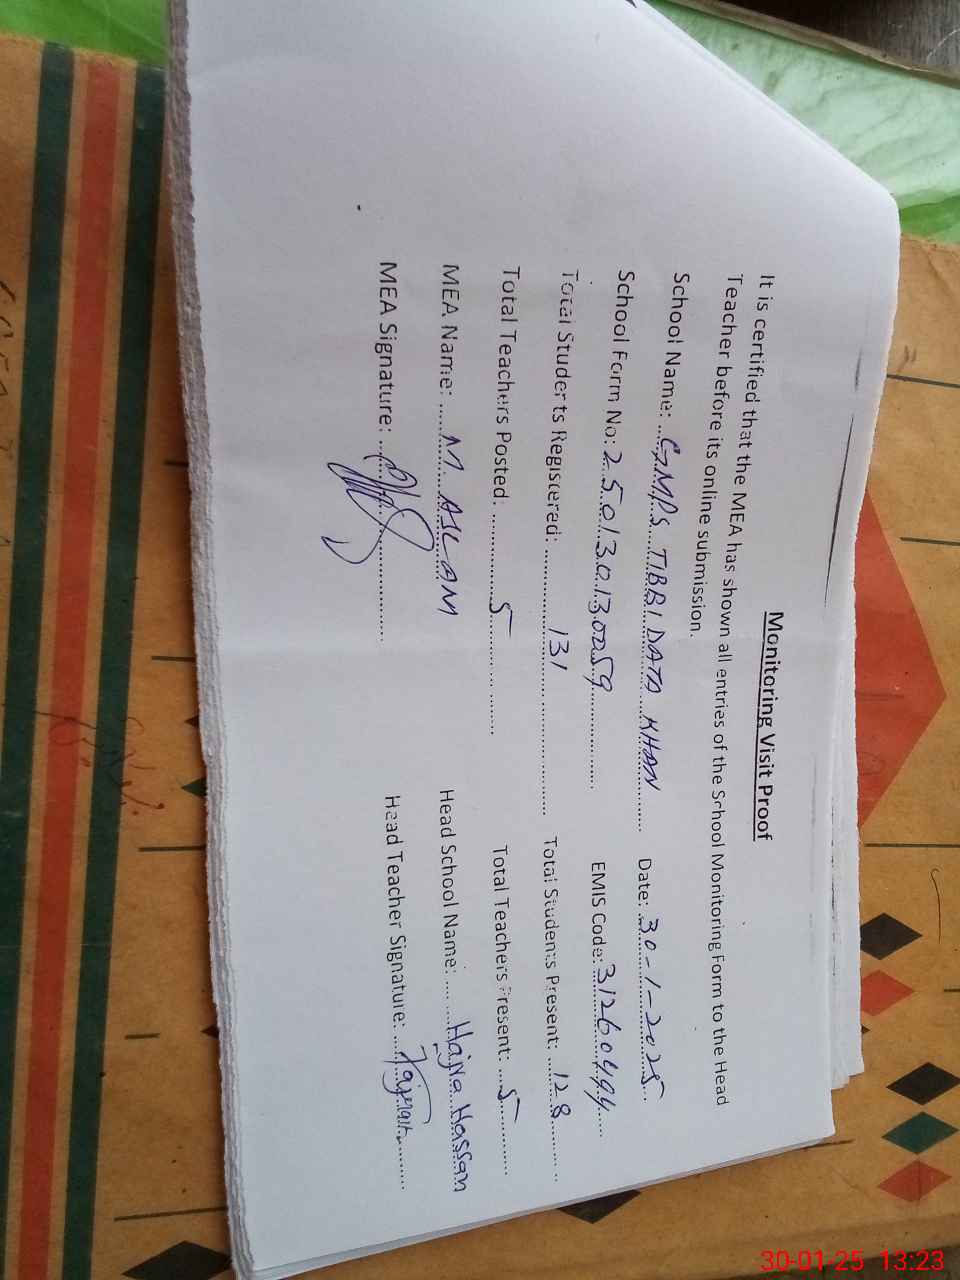 Monitoring Visit Proof
It is certified that the MEA has shown all entries of the School Monitoring Form to the Head
Teacher before its online submission.
School Name: ...GMPS TIBBI DATA KHAN........... Date: 30-1-2025..
School Form No: 2501301300259............... EMIS Code: 31260494....
Total Students Registered: ............131........................ Total Students Present: ...128..........
Total Teachers Posted: ............5................... Total Teachers Present: ...5..........
MEA Name: ......M ASLAM Head School Name: ..........Hajra Hassan
MEA Signature: ........................... Head Teacher Signature: ....................
30-01-25 13:23